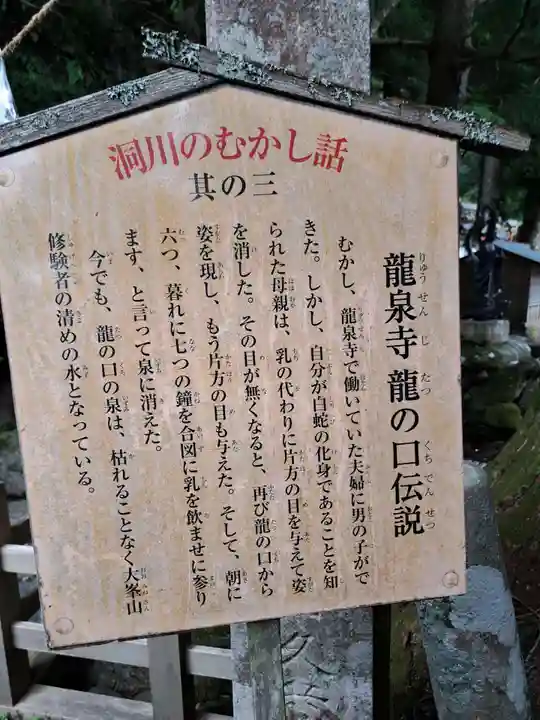 洞川のむかし話
其の三
龍泉寺 龍の口伝説
むかし、龍泉寺で働いていた夫婦に男の子がで
きた。しかし、自分が白蛇の化身であることを知
られた母親は、乳の代わりに片方の目を与えて姿
を消した。その目が無くなると、再び龍の口から
姿を現し、もう片方の目も与えた。そして、朝に
六つ、暮れに七つの鐘を合図に乳を飲ませに参り
ます、と言って泉に消えた。
今でも、龍の口の泉は、枯れることなく大峯山
修験者の清めの水となっている。
久